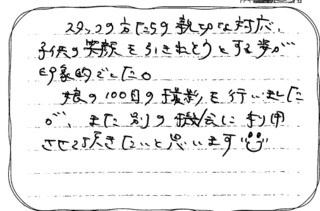 スタッフの方たちの親切な対応、
子供の笑顔を引きだそうとする姿が
印象的でした。
娘の100日の撮影を行いました
が、また別の機会に利用
させて頂きたいと思います